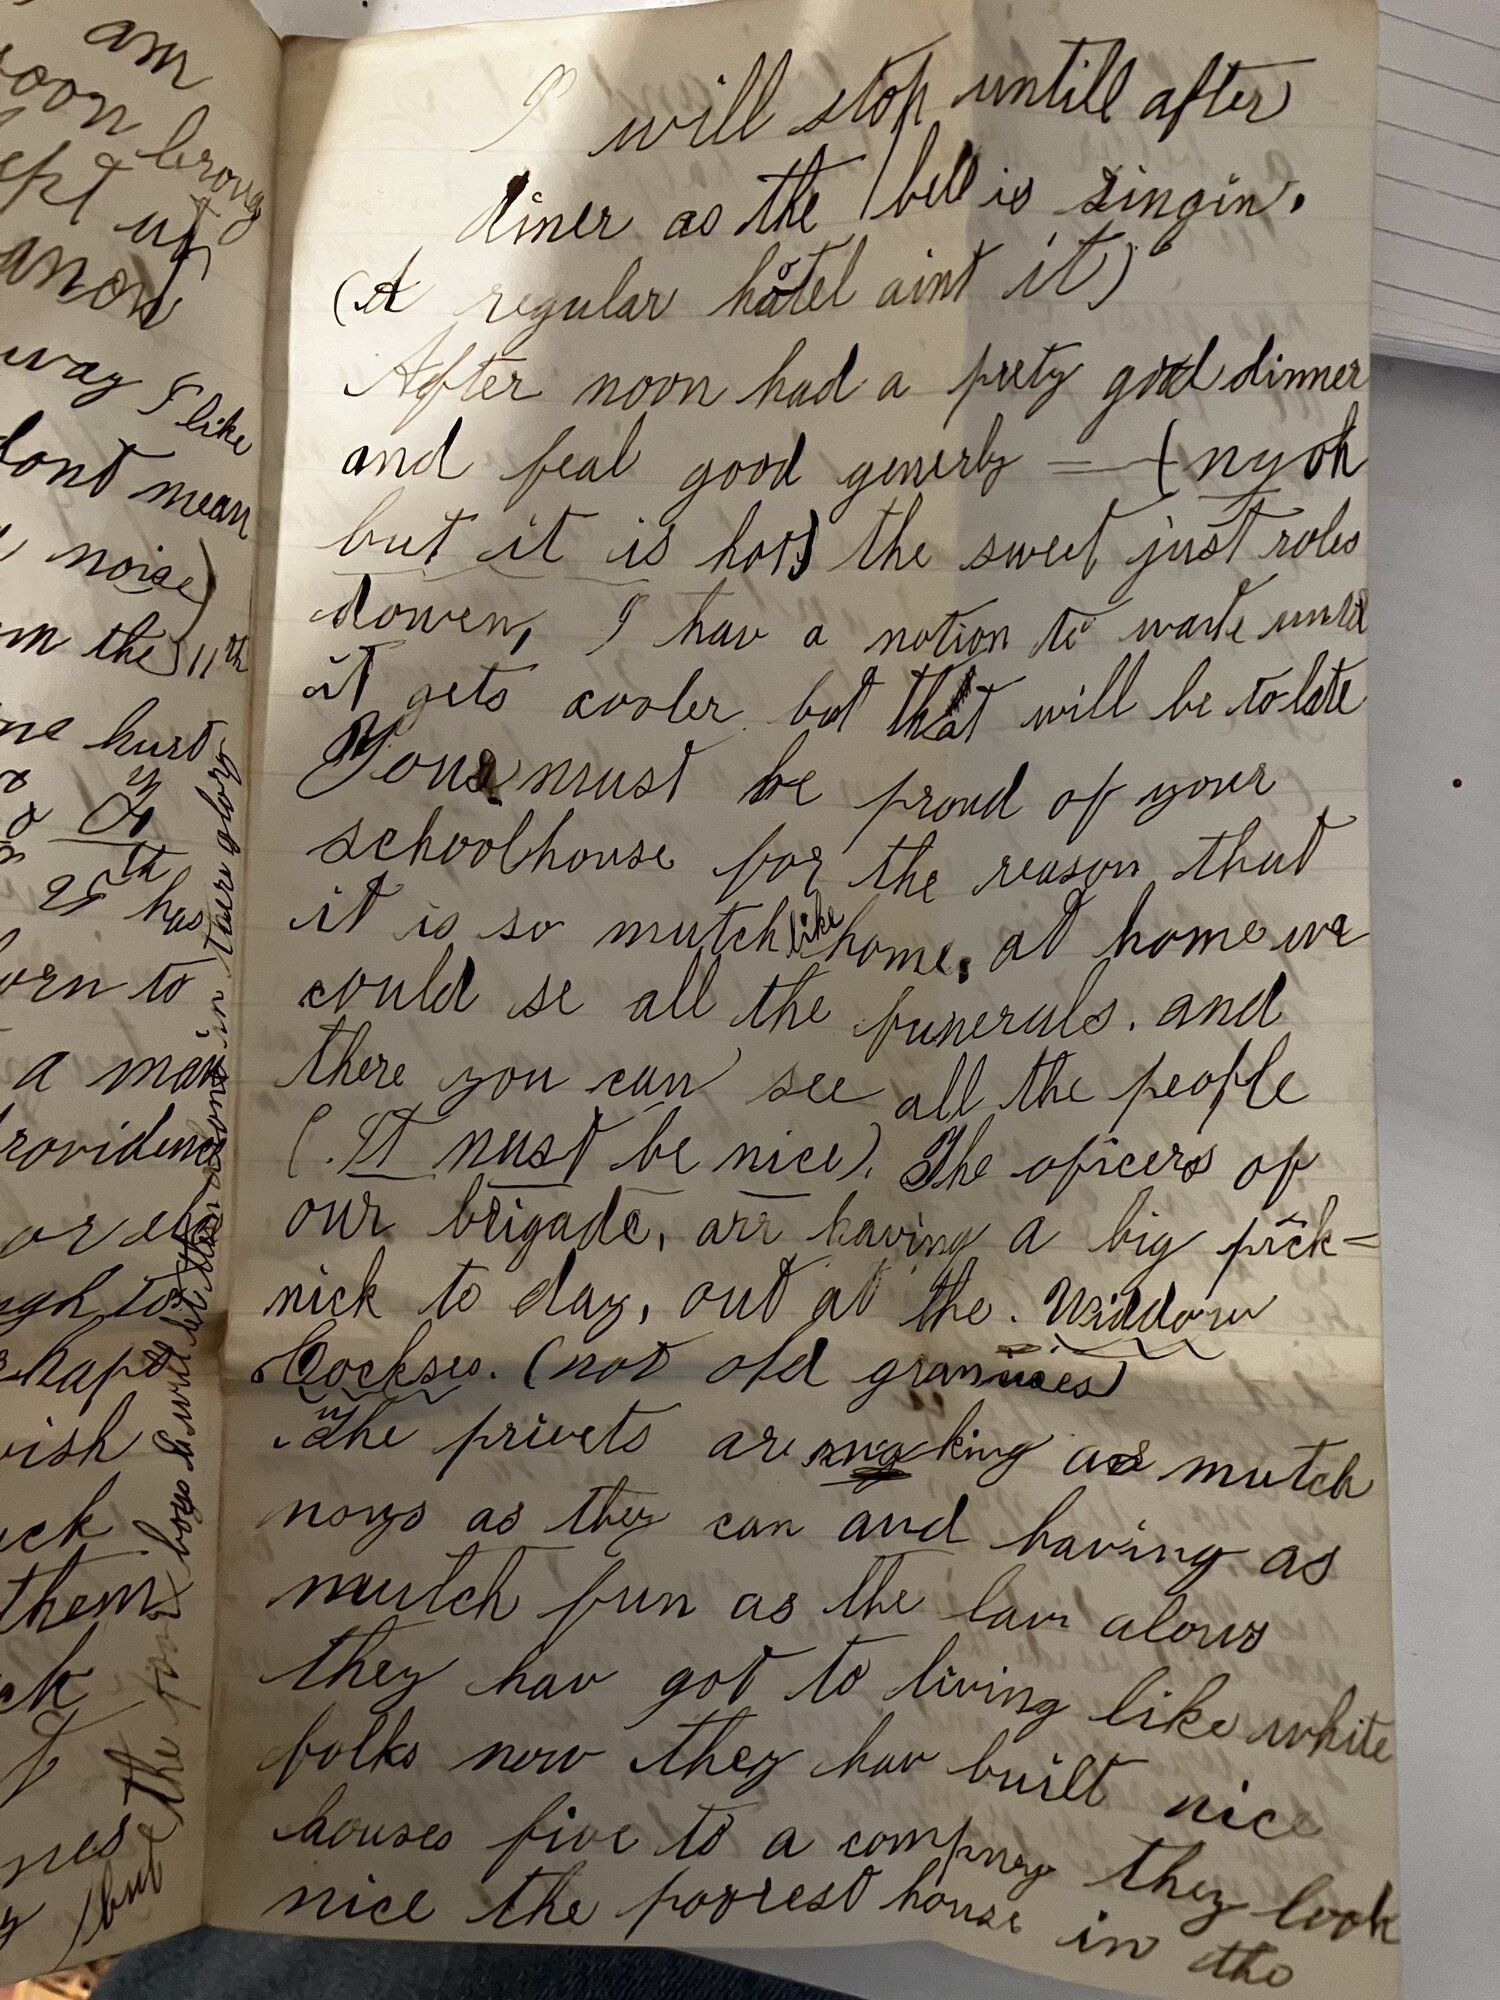 am
soon brong
ept up
anon
way I like
dont mean
noise)
m the 11th
me hurt
25th has
orn to
a man
rovidence
or eh
ugh to
hapes
wish
ack
them
but the four boys h will let them shont in there glory
I will stop untill after
diner as the bell is singin.
(A regular hotel aint it)
After noon had a prety good dinner
and feal good generly = (ny oh
but it is hot) the swet just roles
dowen, I hav a notion to waite untill
it gets cooler but that will be to late
You must be proud of your
schoolhouse for the reason that
it is so mutch like home. at home we
could se all the funerals. and
there you can see all the people
(. It must be nice). The oficers of
our brigade, are having a big pick=
nick to day, out at the. Widdow
Cockses. (not old grannies)
The privets are making as mutch
noys as they can and having as
mutch fun as the law alows
they hav got to living like white
folks now they hav built nice
houses five to a compney they look
nice the poorest house in the